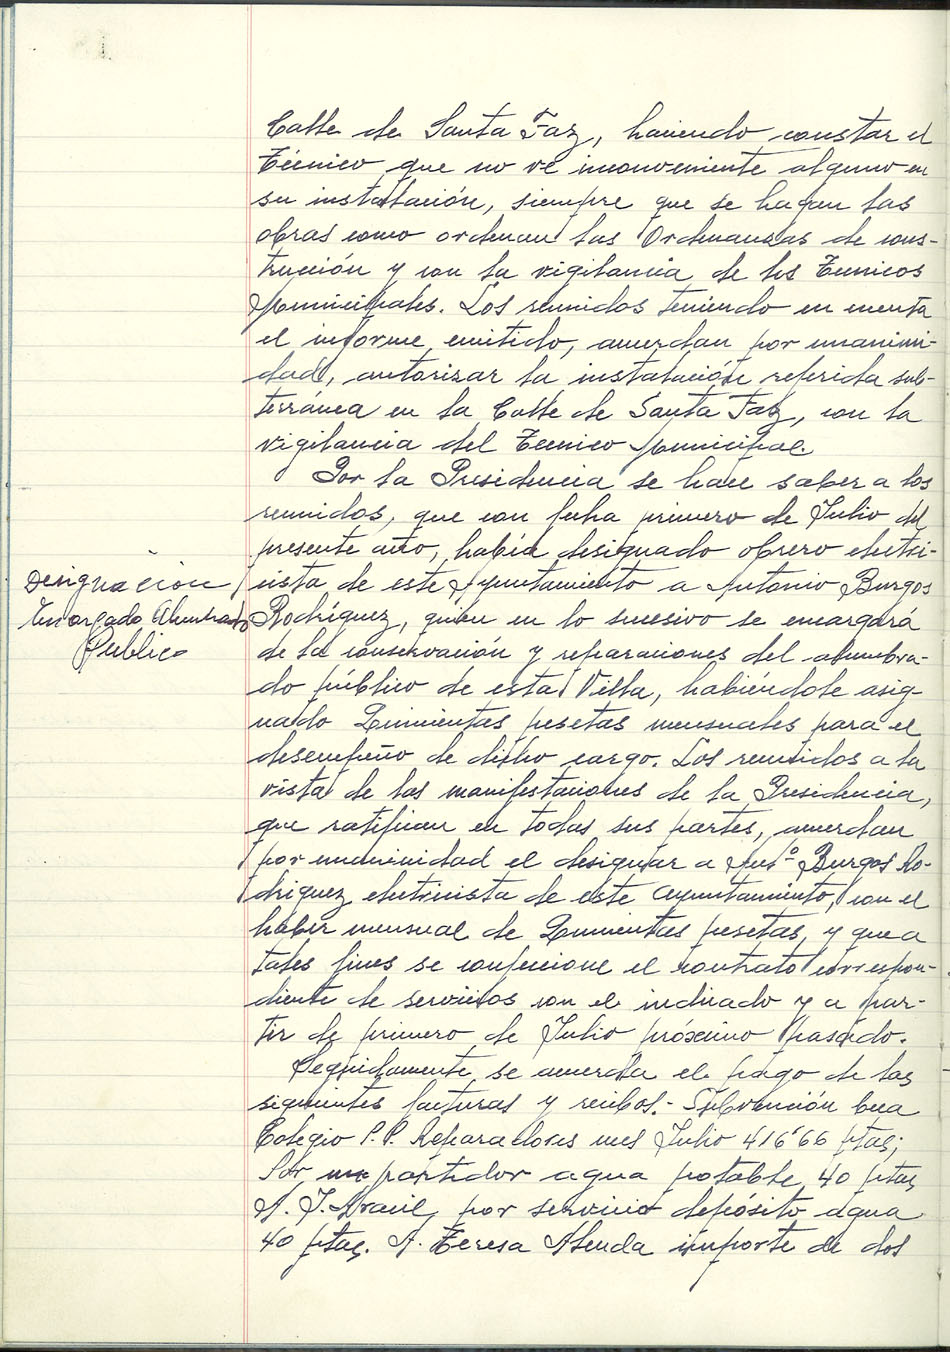 Calle de Santa Faz, haciendo constar el
Técnico que no vé inconveniente alguno en
su instalación, siempre que se hagan las
obras como ordenan las Ordenanzas de cons-
trucción y con la vigilancia de los Tecnicos
Municipales. Los reunidos teniendo en cuenta
el informe emitido, acuerdan por unanimi-
dad, autorizar la instalación referida sub-
terránea en la Calle de Santa Faz, con la
vigilancia del Tecnico Municipal.
Por la Presidencia se hace saber a los
reunidos, que con fecha primero de Julio del
presente año, había designado obrero electri-
cista de este Ayuntamiento a Antonio Burgos
Rodríguez, quien en lo sucesivo se encargará
de la conservación y reparaciones del alumbra-
do público de esta Villa, habiéndole asig-
nado Quinientas pesetas mensuales para el
desempeño de dicho cargo. Los reunidos a la
vista de las manifestaciones de la Presidencia,
que ratifican en todas sus partes, acuerdan
por unanimidad el designar a Antº Burgos Ro-
driguez electricista de este Ayuntamiento, con el
haber mensual de Quinientas pesetas, y que a
tales fines se confeccione el contrato correspon-
diente de servicios con el indicado y a par-
tir de primero de Julio próximo pasado.
Seguidamente se acuerda el pago de las
siguientes facturas y recibos.- Subvención beca
Colegio P.P. Reparadores mes Julio 416'66 ptas;
Por partidor agua potable, 40 ptas
A. J. Aracil, por servicio depósito agua
40 ptas. A. Teresa Alenda importe de dos
Designación
Encargado Alumbrado
Público